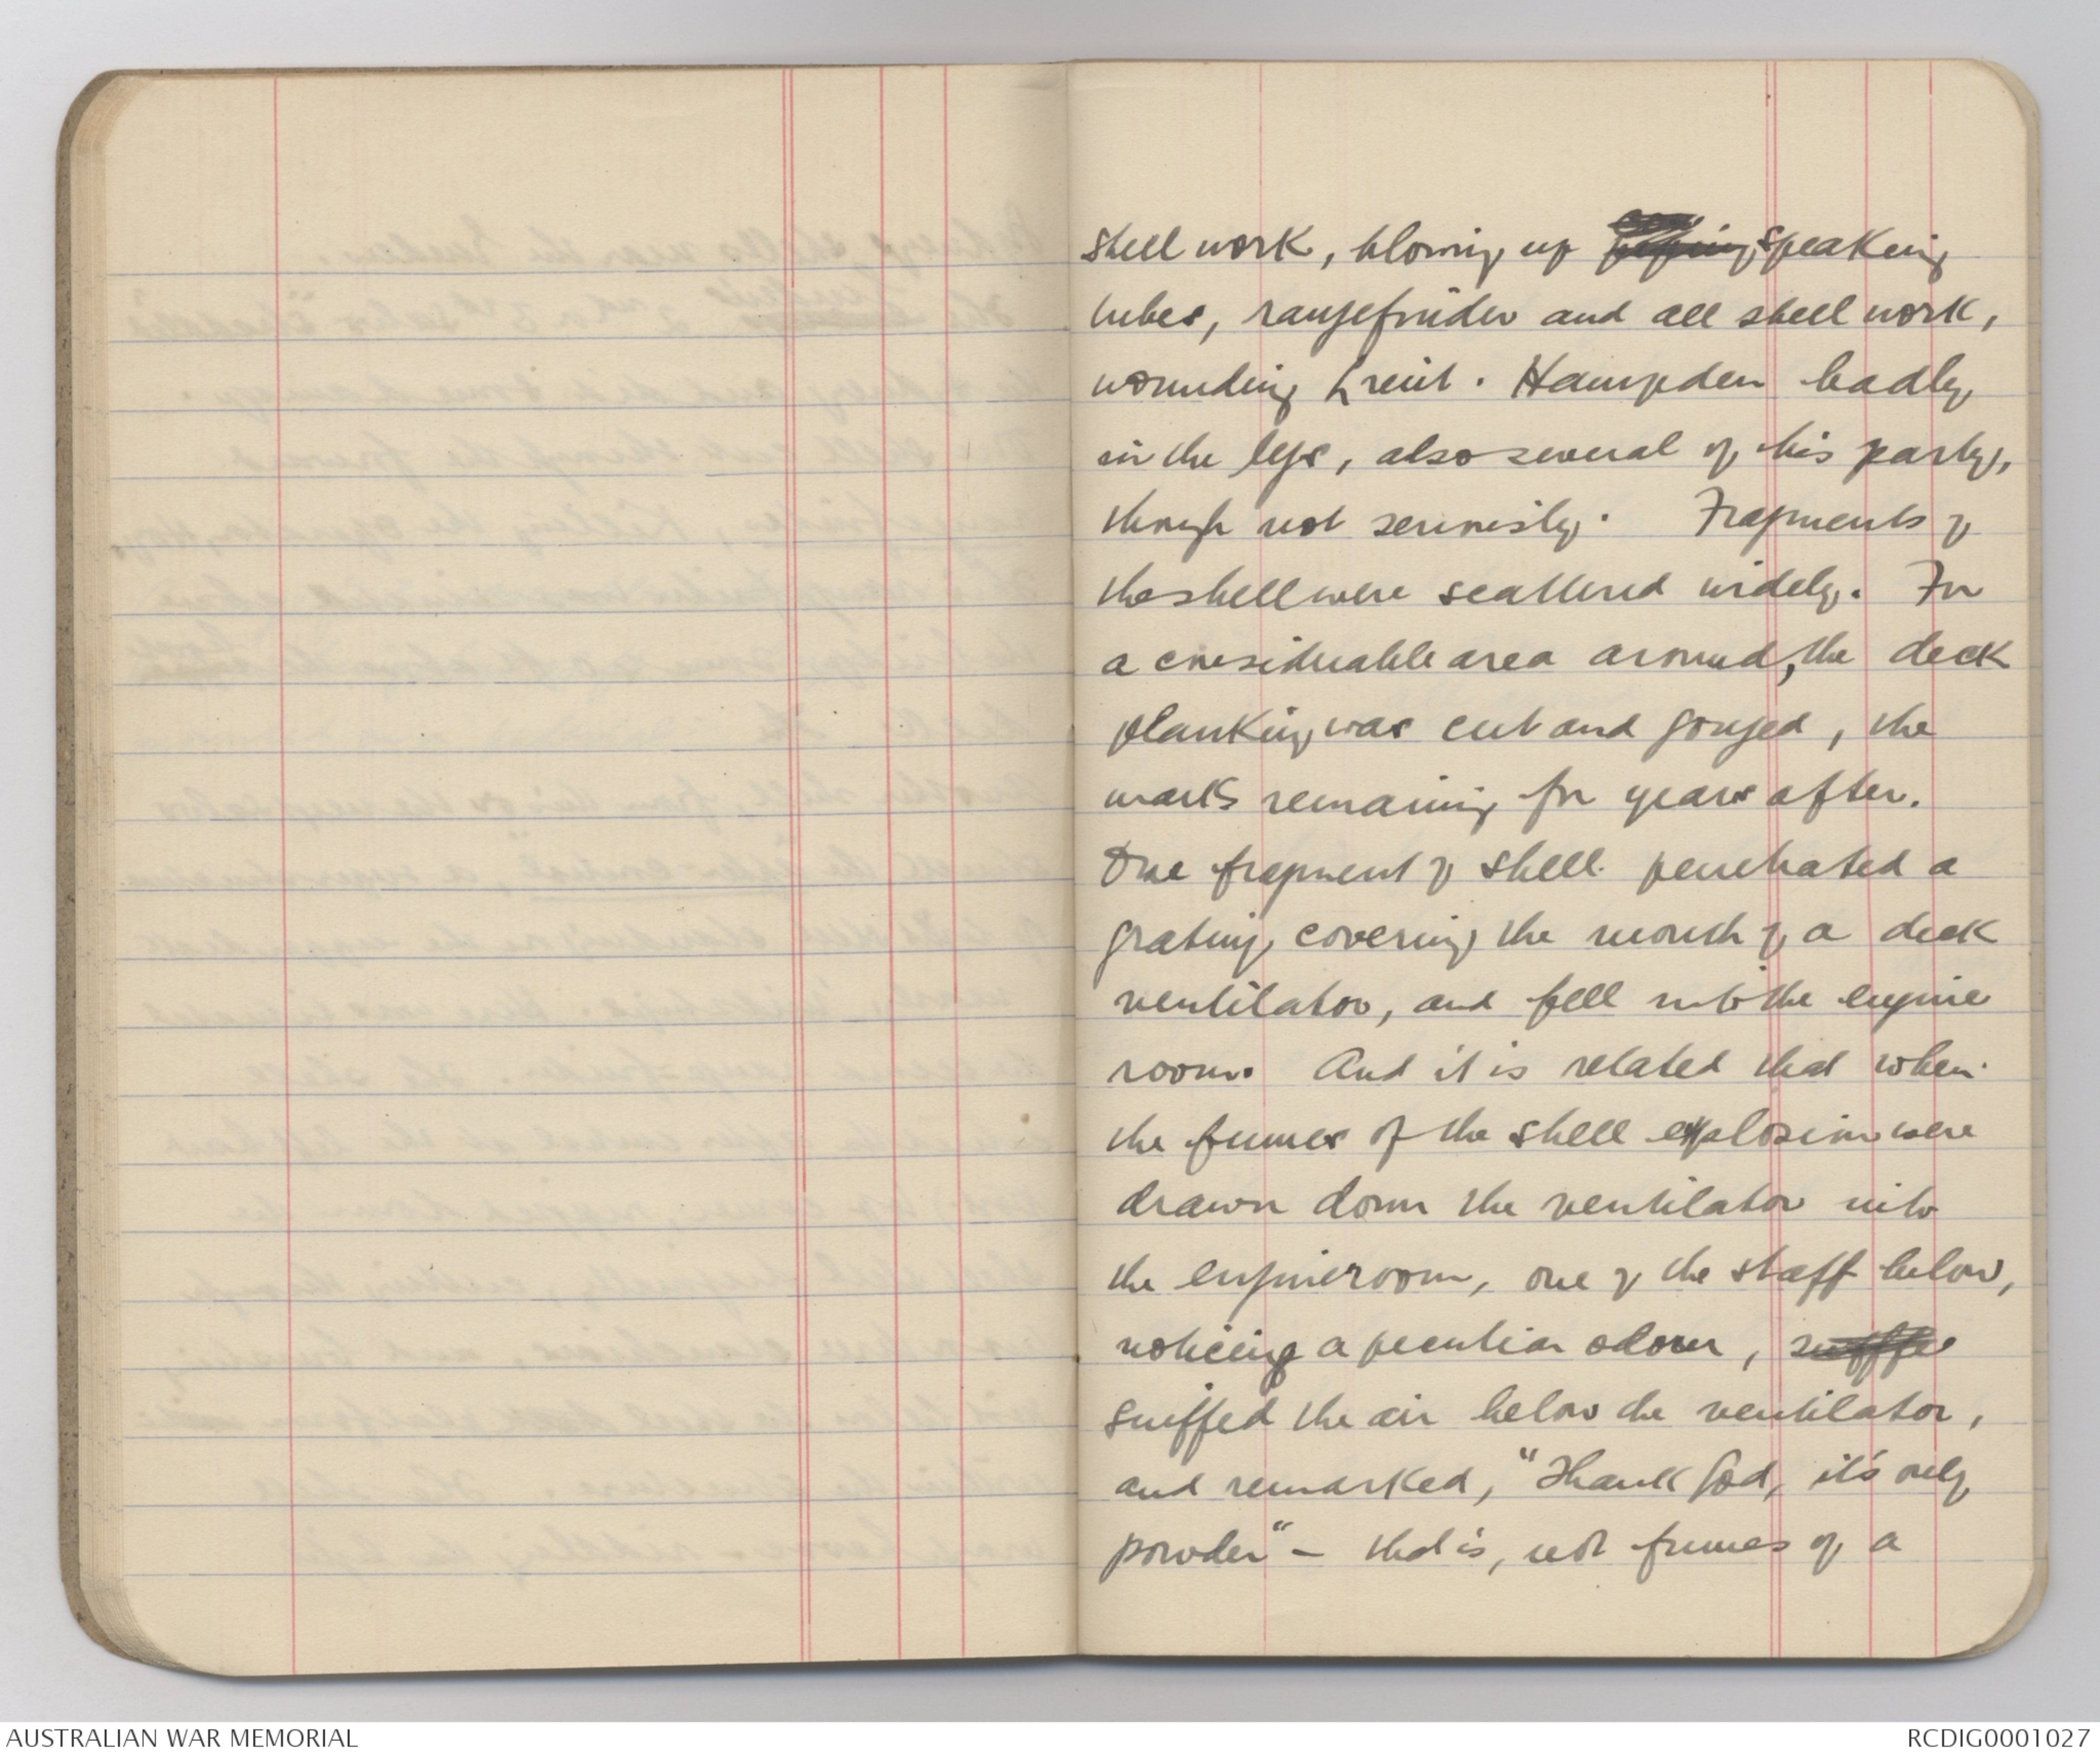 steel work, blowing up speaking
tubes, rangefinder and all steel work,
wounding Lieut. Hampden badly
in the legs, also several of his party,
though not seriously. Fragments of
the shell were scattered widely. For
a considerable area around, the deck
planking was cut and gouged, the
marks remaining for years after.
One fragment of shell penetrated a
grating covering the mouth of a deck
ventilator, and fell into the engine
room. And it is related that when
the fumes of the shell explosion were
drawn down the ventilator into
the engineroom, one of the staff below,
noticing a peculiar odour,
sniffed the air below the ventilator,
and remarked, "Thank God, it's only
powder" - that is, not fumes of a
AUSTRALIAN WAR MEMORIAL
RCDIG0001027